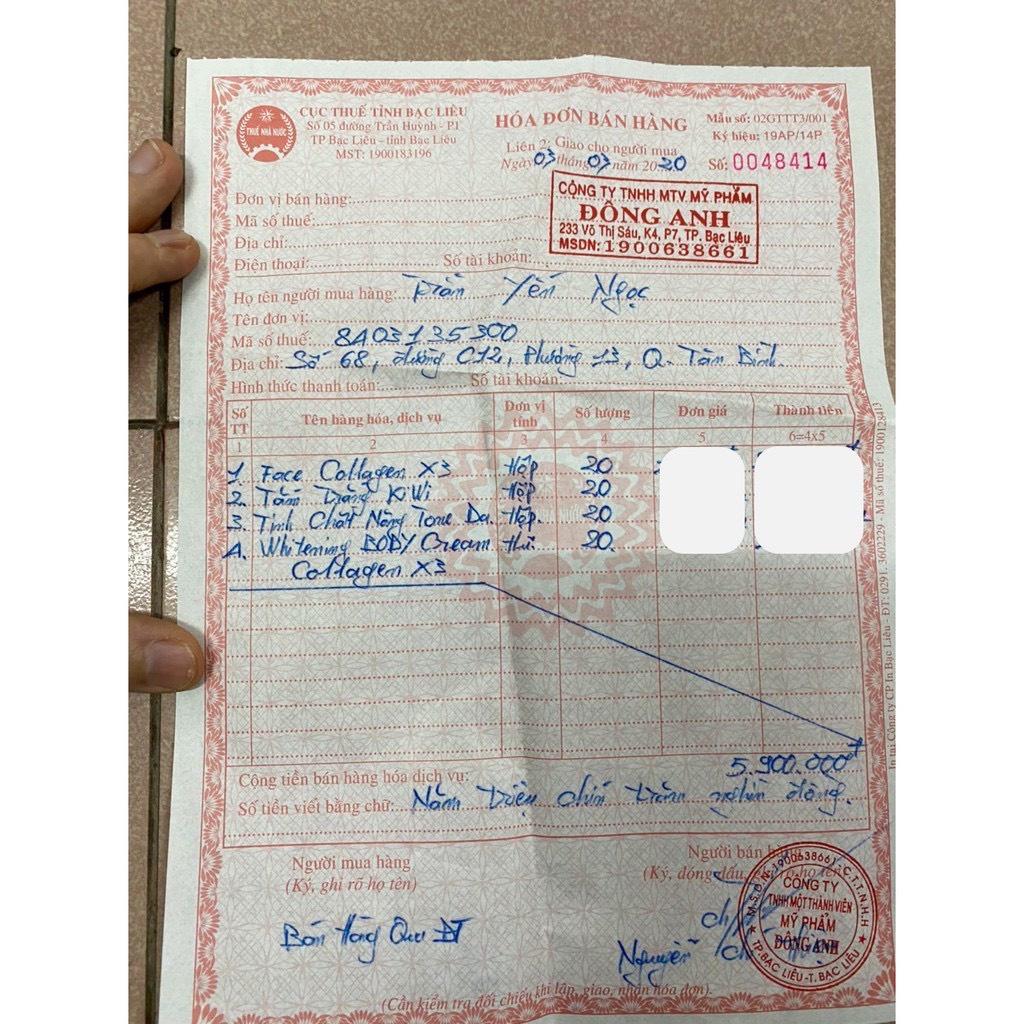 CỤC THUẾ TỈNH BẠC LIÊU
Số 05 đường Trần Huỳnh - P1
TP Bạc Liêu - tỉnh Bạc Liêu
MST: 1900183196
THUẾ NHÀ NƯỚC
HÓA ĐƠN BÁN HÀNG
Liên 2: Giao cho người mua
Ngày 03 tháng 03 năm 2020
Mẫu số: 02GTTT3/001
Ký hiệu: 19AP/14P
Số: 0048414
Đơn vị bán hàng:
Mã số thuế:
Địa chỉ:
Điện thoại: Số tài khoản:
CÔNG TY TNHH MTV MỸ PHẨM
ĐÔNG ANH
233 Võ Thị Sáu, K4, P7, TP. Bạc Liêu
MSDN: 1900638661
Họ tên người mua hàng: Trần Yến Ngọc
Tên đơn vị:
Mã số thuế: 8A03135300
Địa chỉ: Số 68, đường C12, Phường 13, Q. Tân Bình.
Hình thức thanh toán: Số tài khoản:
Số TT Tên hàng hóa, dịch vụ Đơn vị tính Số lượng Đơn giá Thành tiền
1 2 3 4 5 6=4x5
1 Face Collagen X3 Hộp 20
2. Tắm Trắng KiWi Hộp 20
3. Tinh Chất Nâng Tone Da. Hộp. 20
4. Whitening BODY Cream Hũ. 20.
Collagen X3
Cộng tiền bán hàng hóa dịch vụ: 5.900.000đ
Số tiền viết bằng chữ: Năm triệu chín trăm nghìn đồng.
Người mua hàng
(Ký, ghi rõ họ tên)
Bán Hàng Qua ĐT
Người bán hàng
(Ký, đóng dấu, ghi rõ họ tên)
Nguyễn
M.S.D.N: 1900638661 - C.T.T.N.H.H
CÔNG TY
TNHH MỘT THÀNH VIÊN
MỸ PHẨM
ĐÔNG ANH
TP.BẠC LIÊU-T. BẠC LIÊU
(Cần kiểm tra đối chiếu khi lập, giao, nhận hóa đơn).
In tại Công ty CP In Bạc Liêu - ĐT: 0291. 3602229 - Mã số thuế: 1900128413